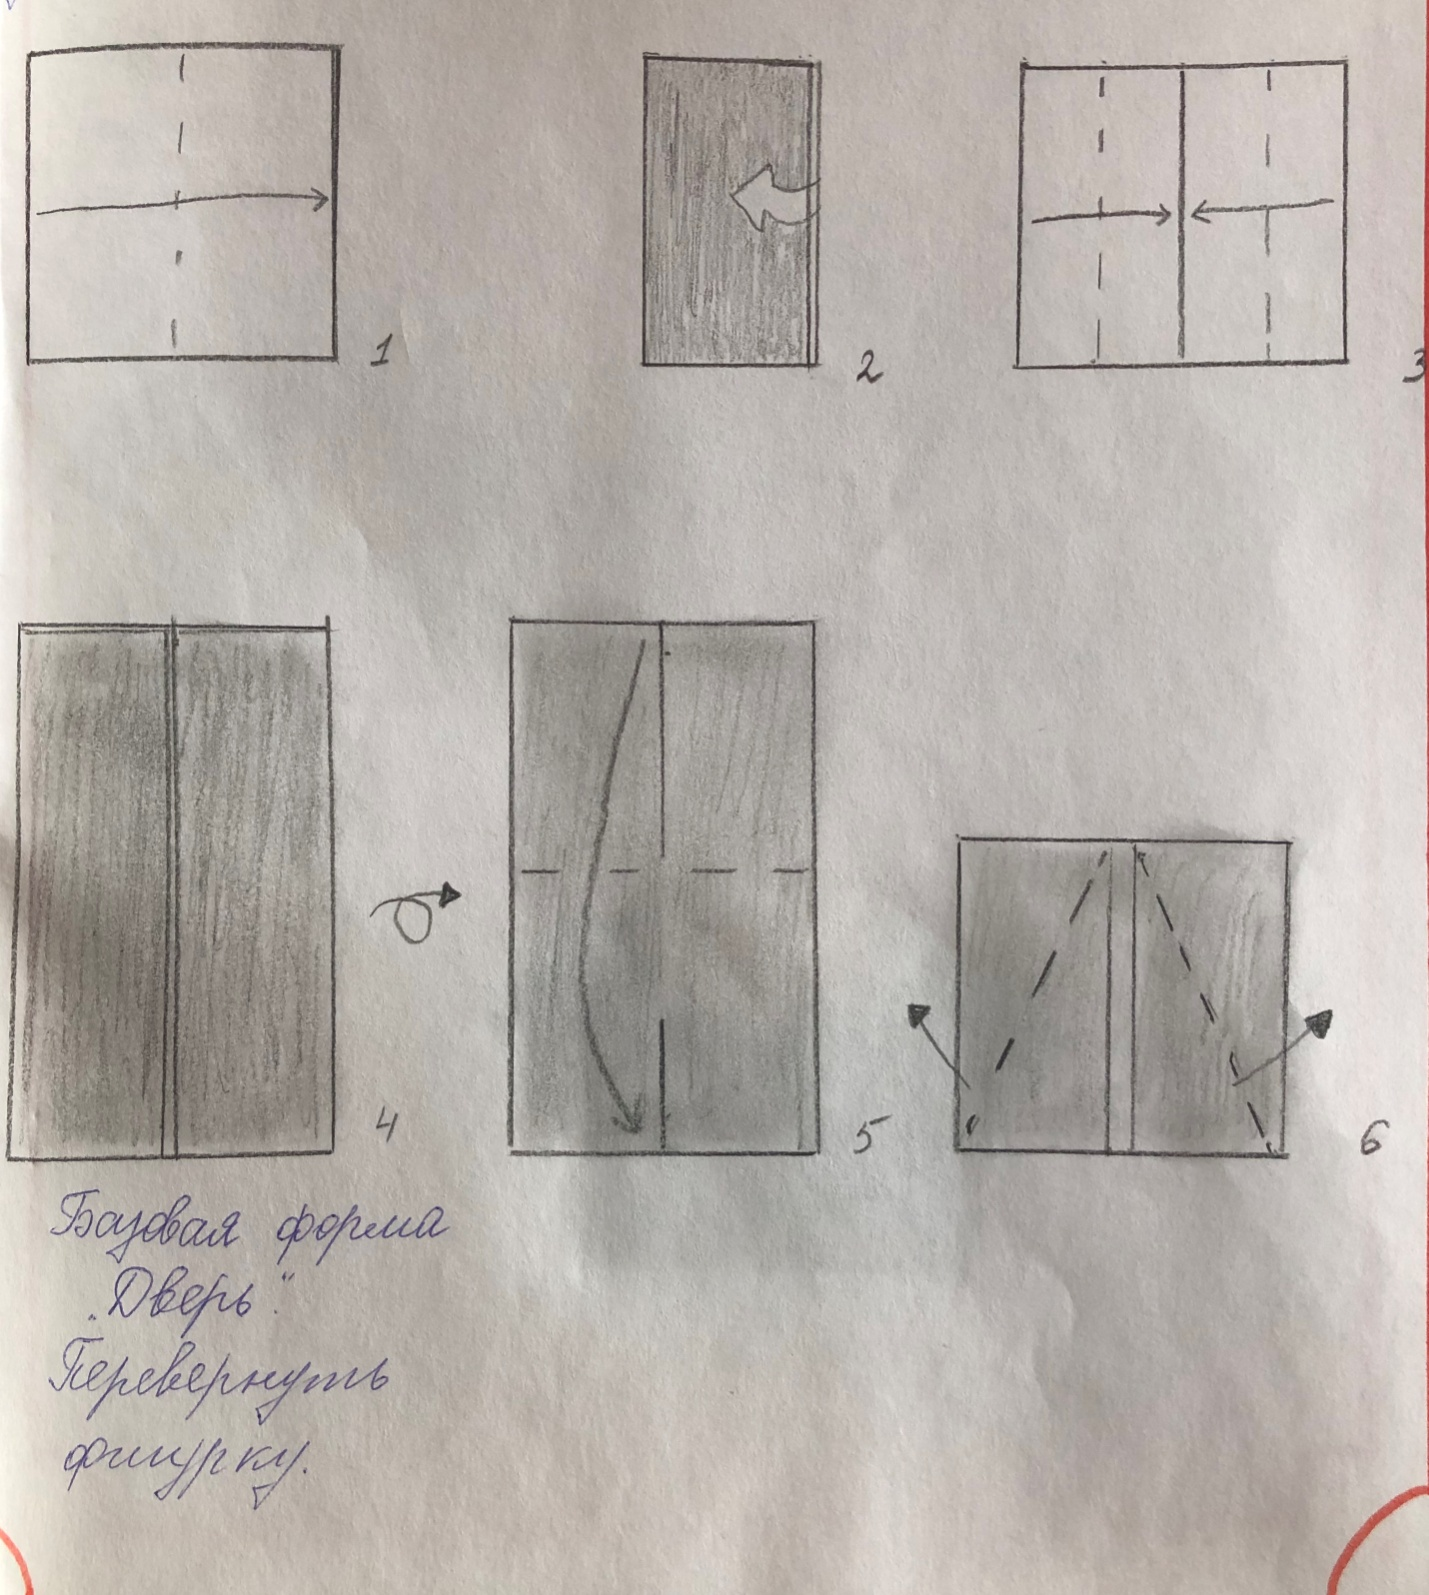 1
2
3
4
5
6
Базовая форма
„Дверь“.
Перевернуть
фигурку.